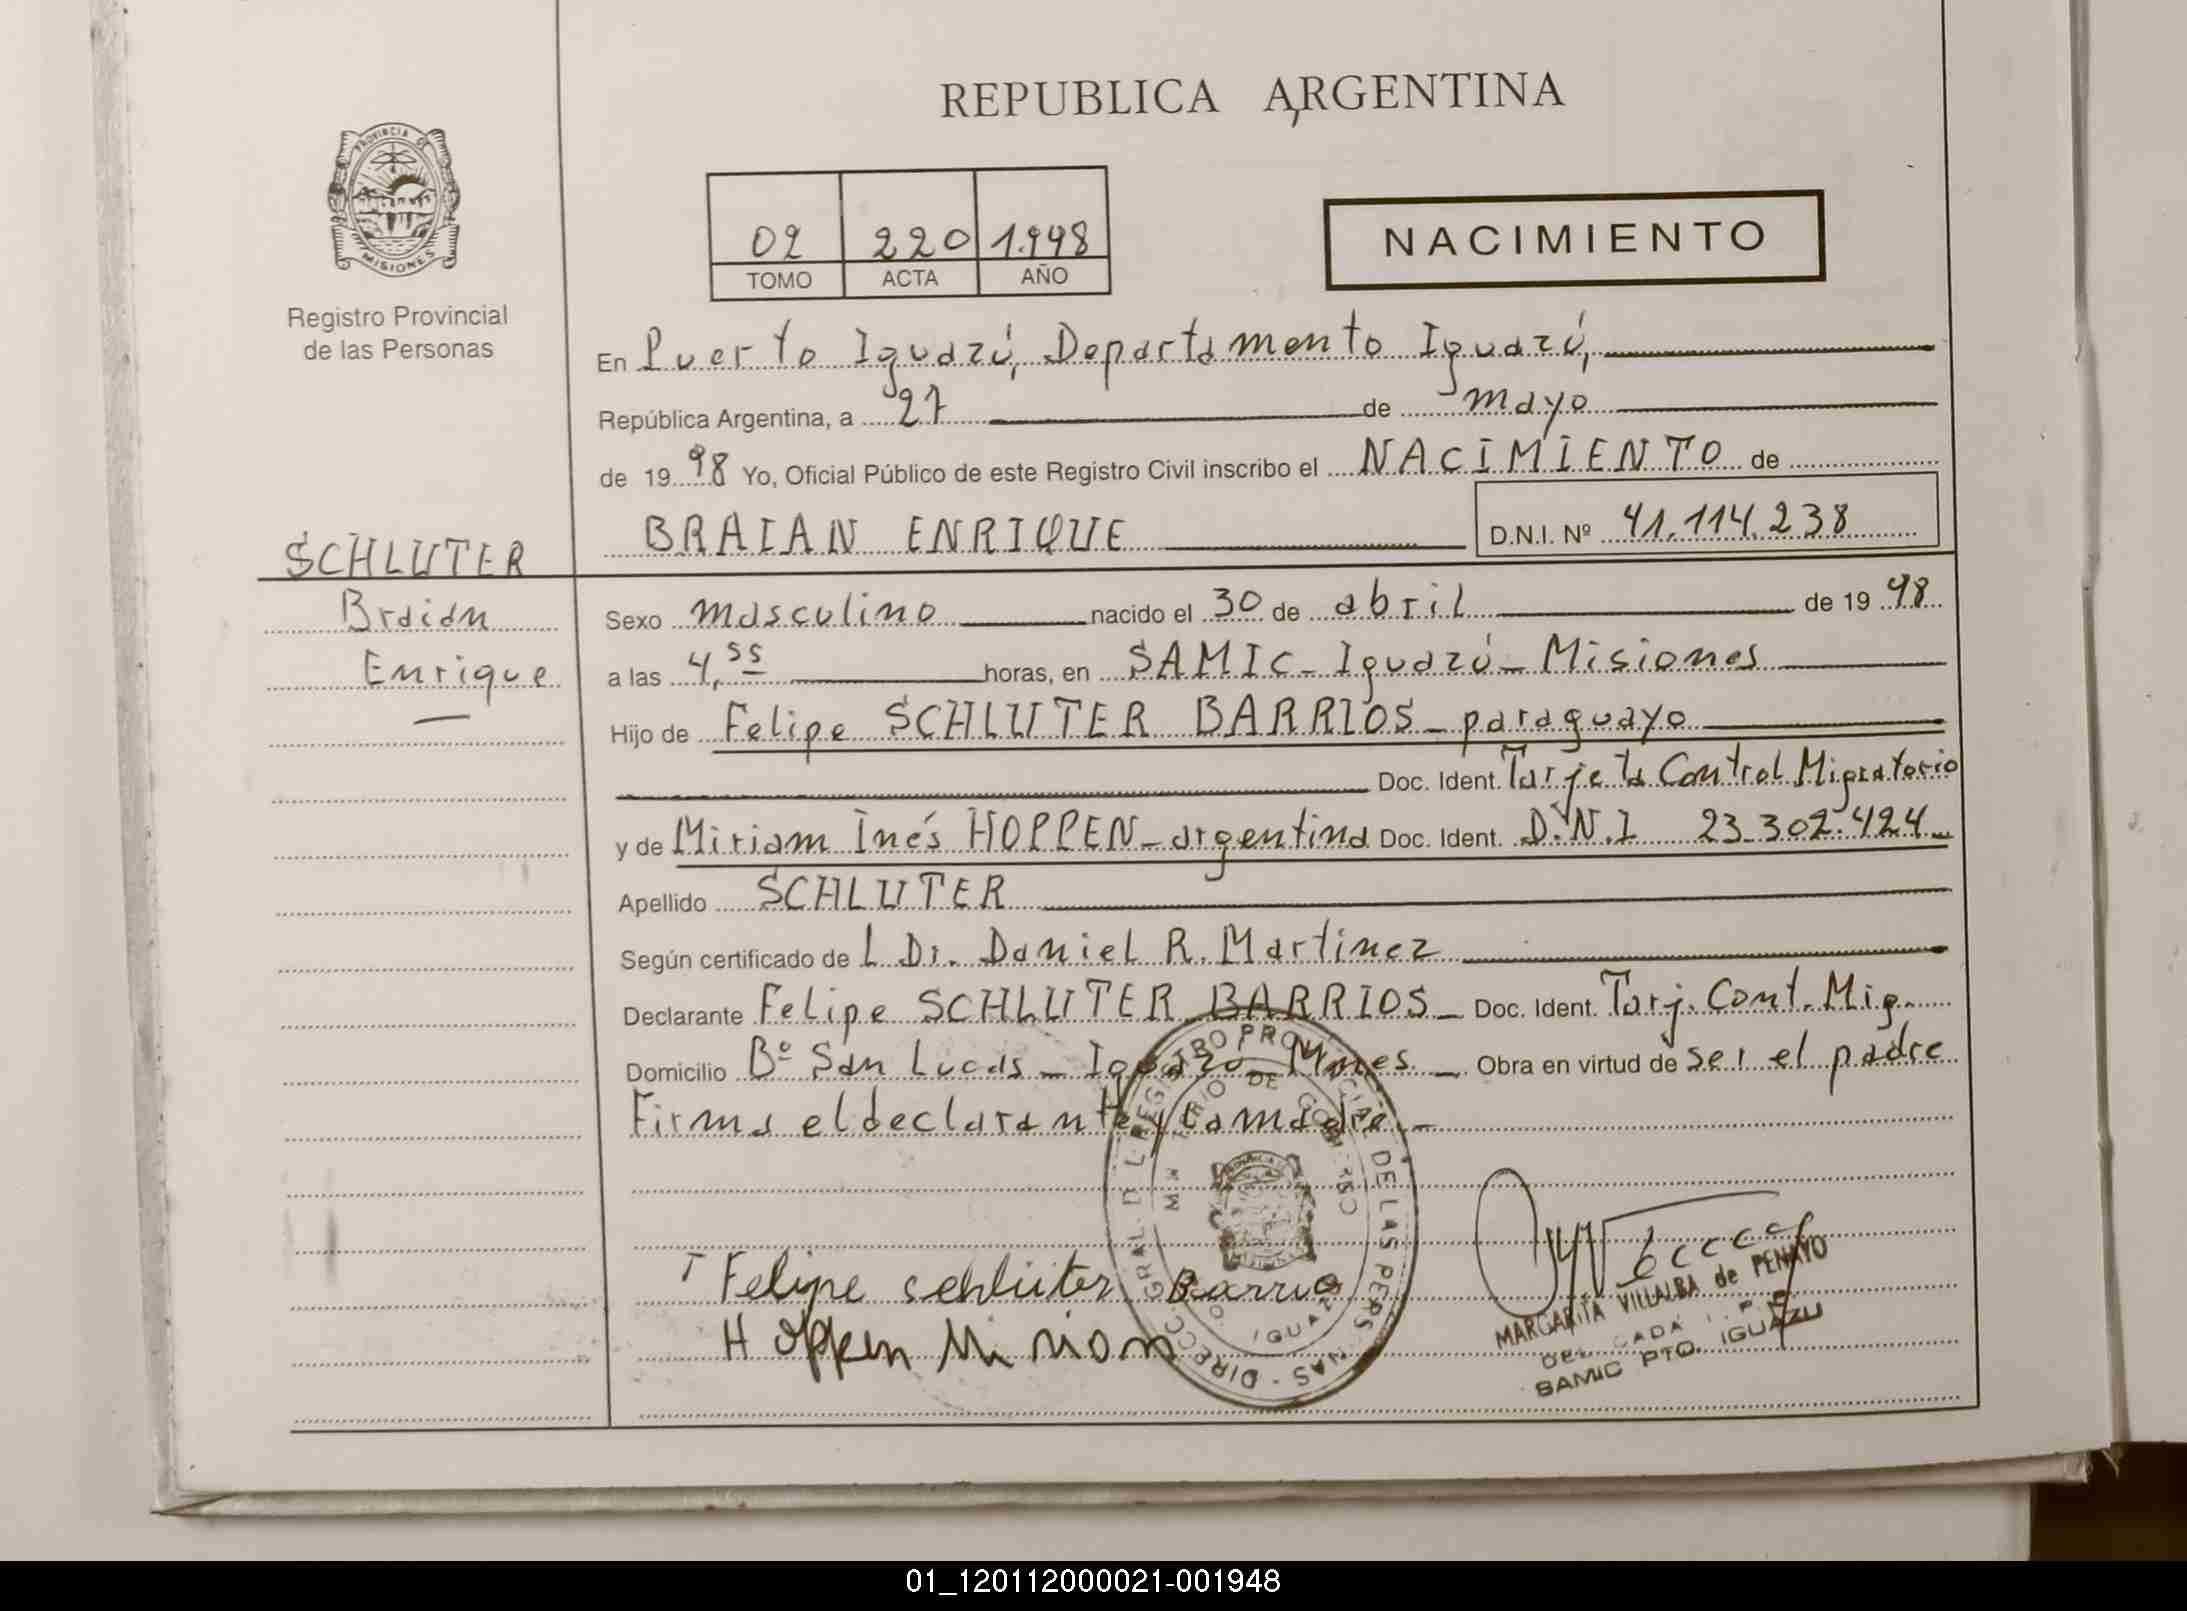 REPUBLICA ARGENTINA
PROVINCIA DE
MISIONES
Registro Provincial
de las Personas
02 220 1.998
TOMO ACTA AÑO
NACIMIENTO
En Puerto Iguazú, Departamento Iguazú,
República Argentina, a 27 de mayo
de 19 98 Yo, Oficial Público de este Registro Civil inscribo el NACIMIENTO de
BRAIAN ENRIQUE D.N.I. Nº 41.114.238
SCHLUTER
Braian
Enrique
Sexo masculino nacido el 30 de abril de 19 98
a las 4,55 horas, en SAMIC - Iguazú - Misiones
Hijo de Felipe SCHLUTER BARRIOS - paraguayo
Doc. Ident. Tarjeta Control Migratorio
y de Miriam Inés HOPPEN - argentina Doc. Ident. D.N.I 23.302.424
Apellido SCHLUTER
Según certificado de L Dr. Daniel R. Martinez
Declarante Felipe SCHLUTER BARRIOS - Doc. Ident. Tarj. Cont. Mig.
Domicilio Bº San Lucas - Iguazú - Mnes - Obra en virtud de ser el padre
Firma el declarante y la madre. -
Felipe schluter Barrio
Hoppen Miriam
DIRECC. GRAL. DEL REGISTRO PROVINCIAL DE LAS PERSONAS
IGUAZU
MARGARITA VILLALBA de PENAYO
DELEGADA
SAMIC PTO. IGUAZU
01_120112000021-001948